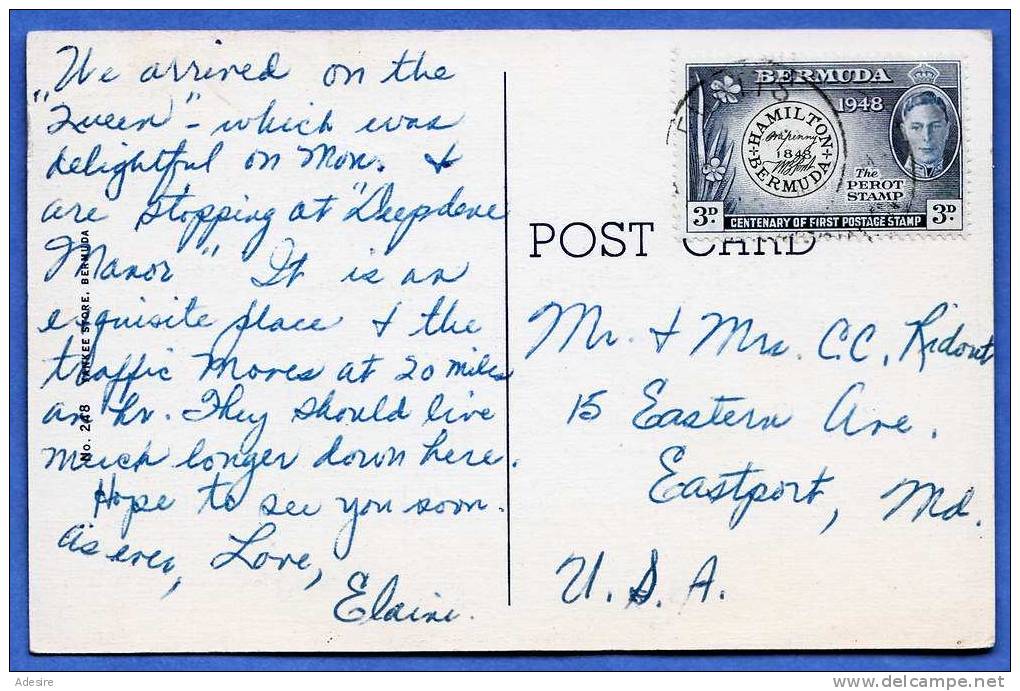 We arrived on the
"Queen" - which was
delightful on Mon. &
are stopping at "Deepdene
Manor" It is an
exquisite place & the
traffic moves at 20 miles
an hr. They should live
much longer down here.
Hope to see you soon.
As ever, Love,
Elaine.
No. 248 YANKEE STORE, BERMUDA
BERMUDA
1948
HAMILTON
1848
BERMUDA
The
PEROT
STAMP
3D CENTENARY OF FIRST POSTAGE STAMP 3D
POST CARD
Mr. & Mrs. C.C. Ridout
15 Eastern Ave.
Eastport, Md.
U.S.A.
Adesire
delcampe.net